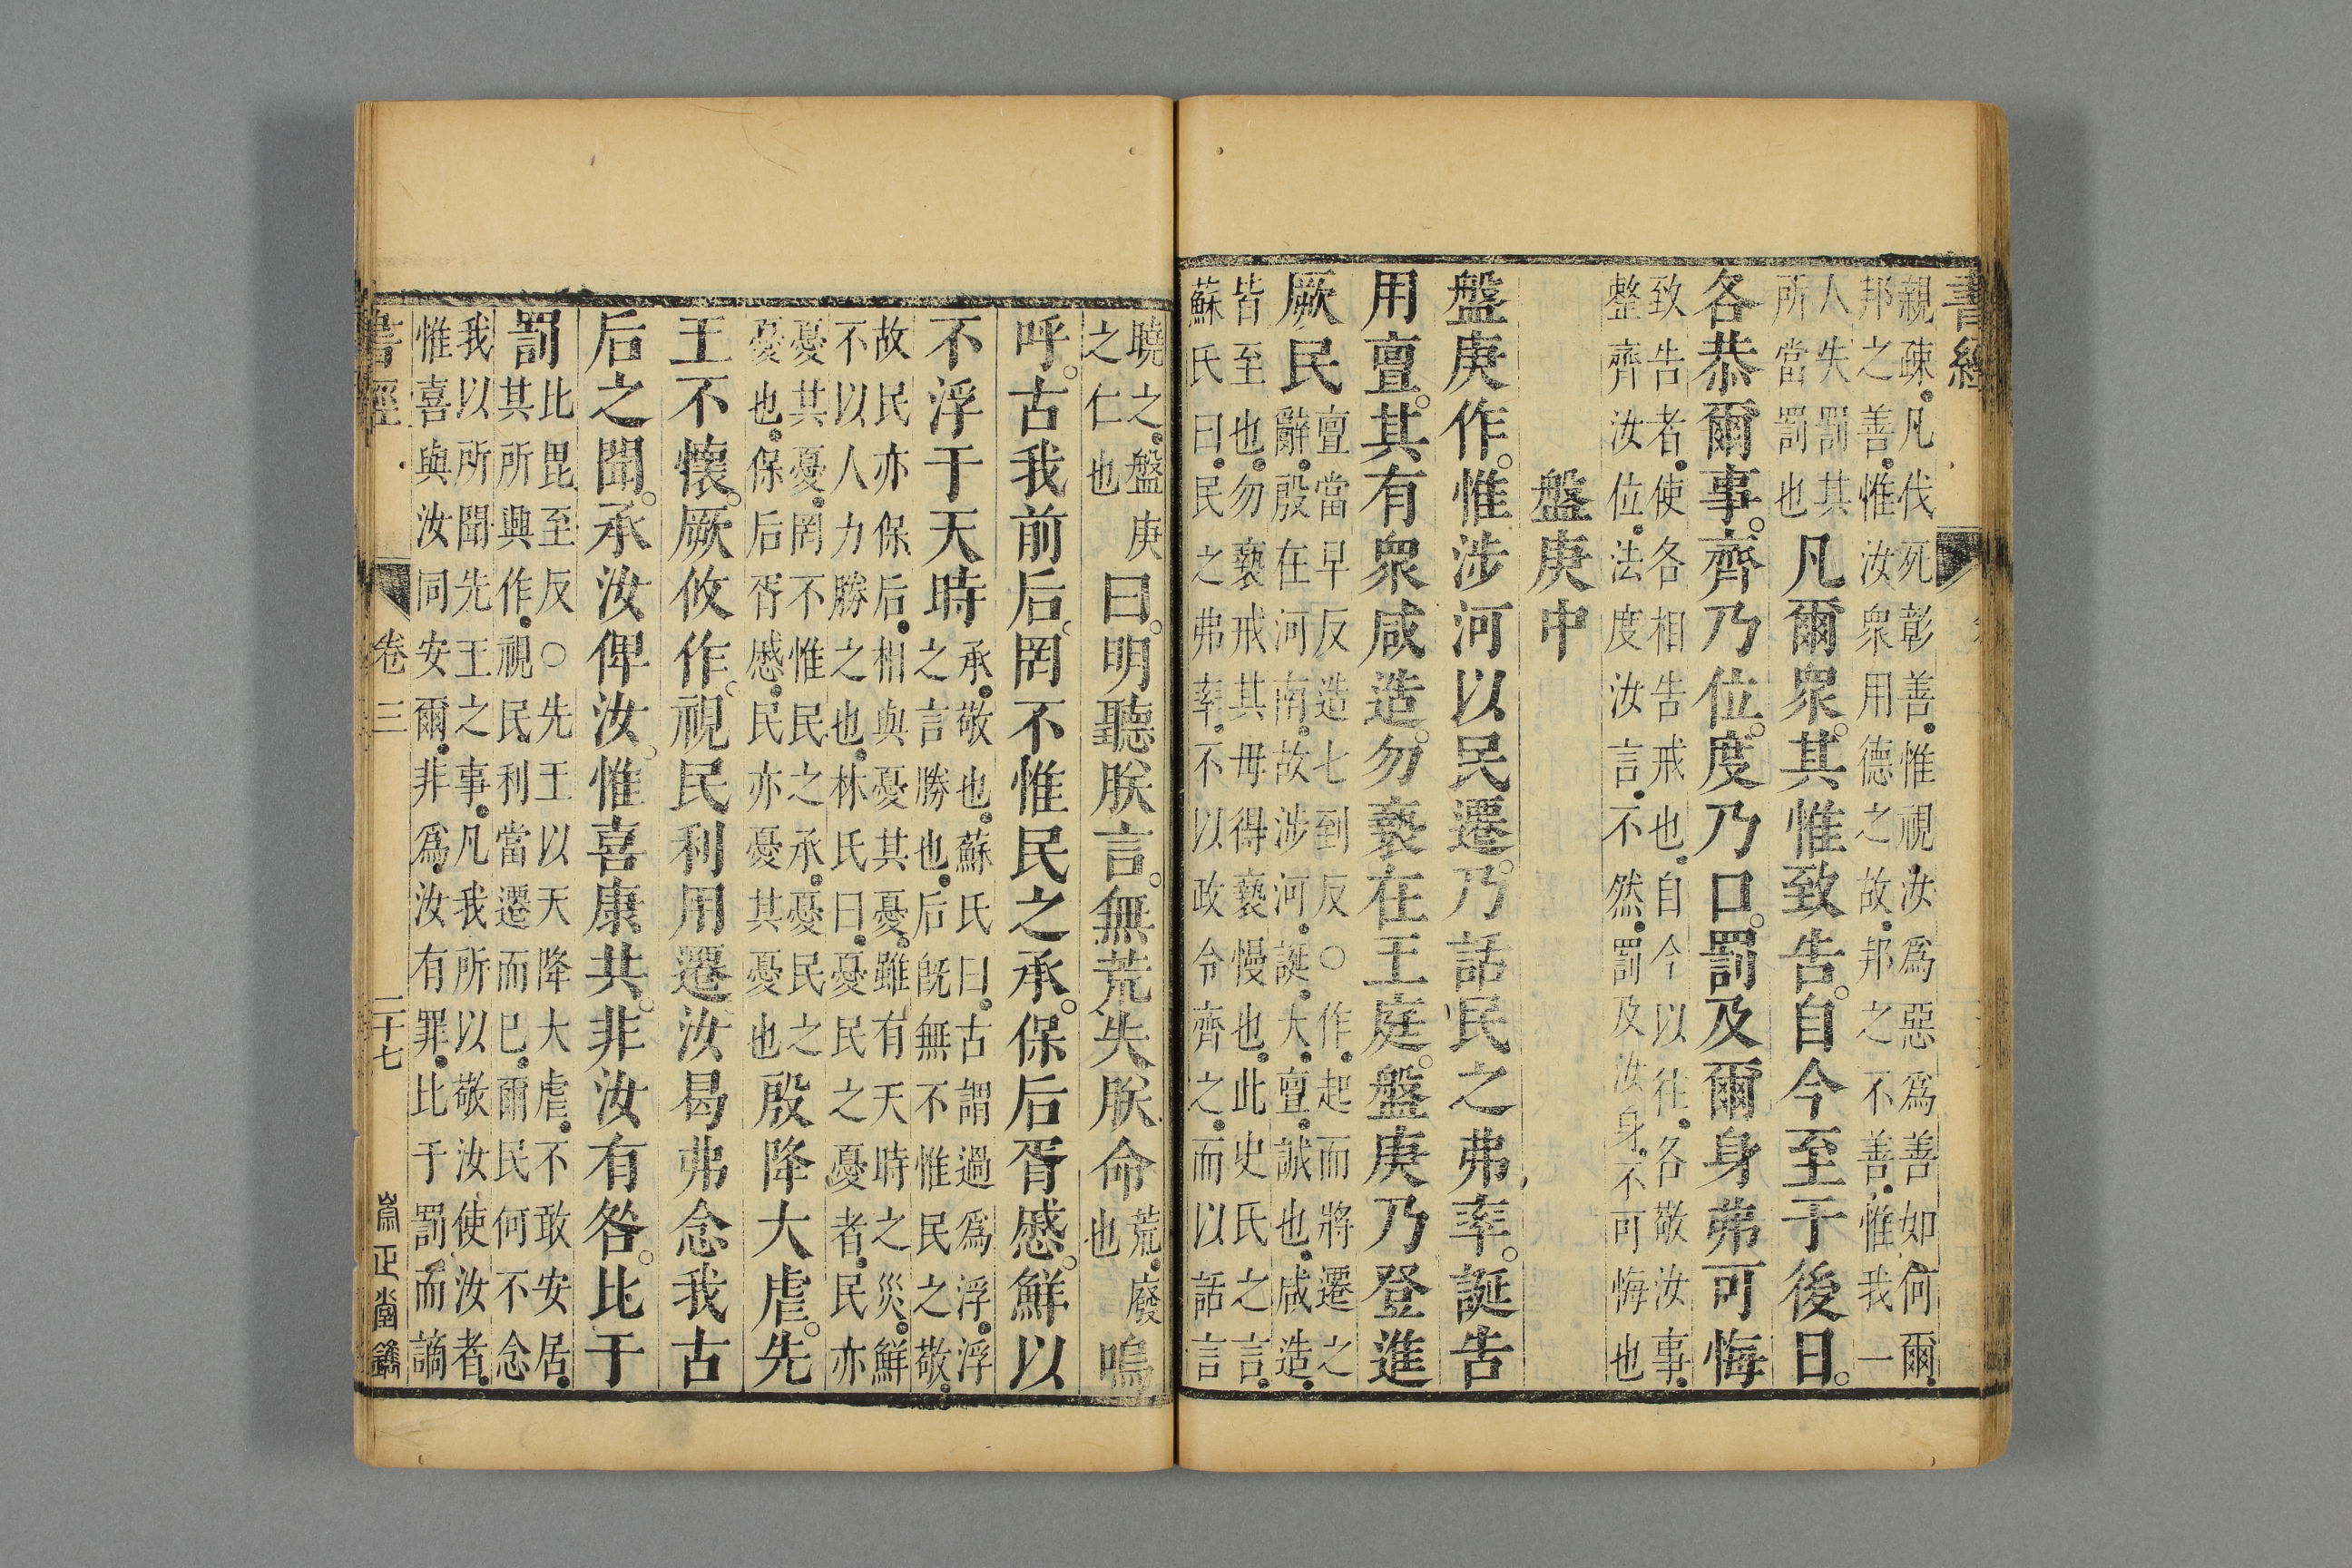 書經
親疎凡伐死彰善惟視汝爲惡爲善如何爾
邦之善惟汝衆用德之故邦之不善惟我一
人失罰其
所當罰也
凡爾衆其惟致告自今至于後日
各恭爾事齊乃位度乃口罰及爾身弗可悔
致告者使各相告戒也自今以往各敬汝事
整齊汝位法度汝言不然罰及汝身不可悔也
盤庚中
盤庚作惟涉河以民遷乃話民之弗率誕告
用亶其有衆咸造勿褻在王庭盤庚乃登進
厥民
亶當早反造七到反○作起而將遷之
辭殷在河南故涉河誕大亶誠也咸造
皆至也勿褻戒其毋得褻慢也此史氏之言
蘇氏曰民之弗率不以政令齊之而以話言
曉之盤庚
之仁也
曰明聽朕言無荒失朕命
荒廢
也
嗚
呼古我前后罔不惟民之承保后胥慼鮮以
不浮于天時
承敬也蘇氏曰古謂過爲浮浮
之言勝也后旣無不惟民之敬
故民亦保后相與憂其憂雖有天時之災鮮
不以人力勝之也林氏曰憂民之憂者民亦
憂其憂罔不惟民之承憂民之
憂也保后胥慼民亦憂其憂也
殷降大虐先
王不懷厥攸作視民利用遷汝曷弗念我古
后之聞承汝俾汝惟喜康共非汝有咎比于
罰
比毘至反○先王以天降大虐不敢安居
其所興作視民利當遷而已爾民何不念
我以所聞先王之事凡我所以敬汝使汝者
惟喜與汝同安爾非爲汝有罪比于罰而謫
書經
卷三
二十七
崇正堂鐫